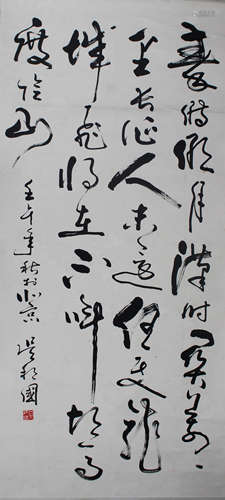 秦时明月漢时関萬
里长征人未還但使龍
城飛将在不叫胡馬
度陰山
壬午年秋於北京
國